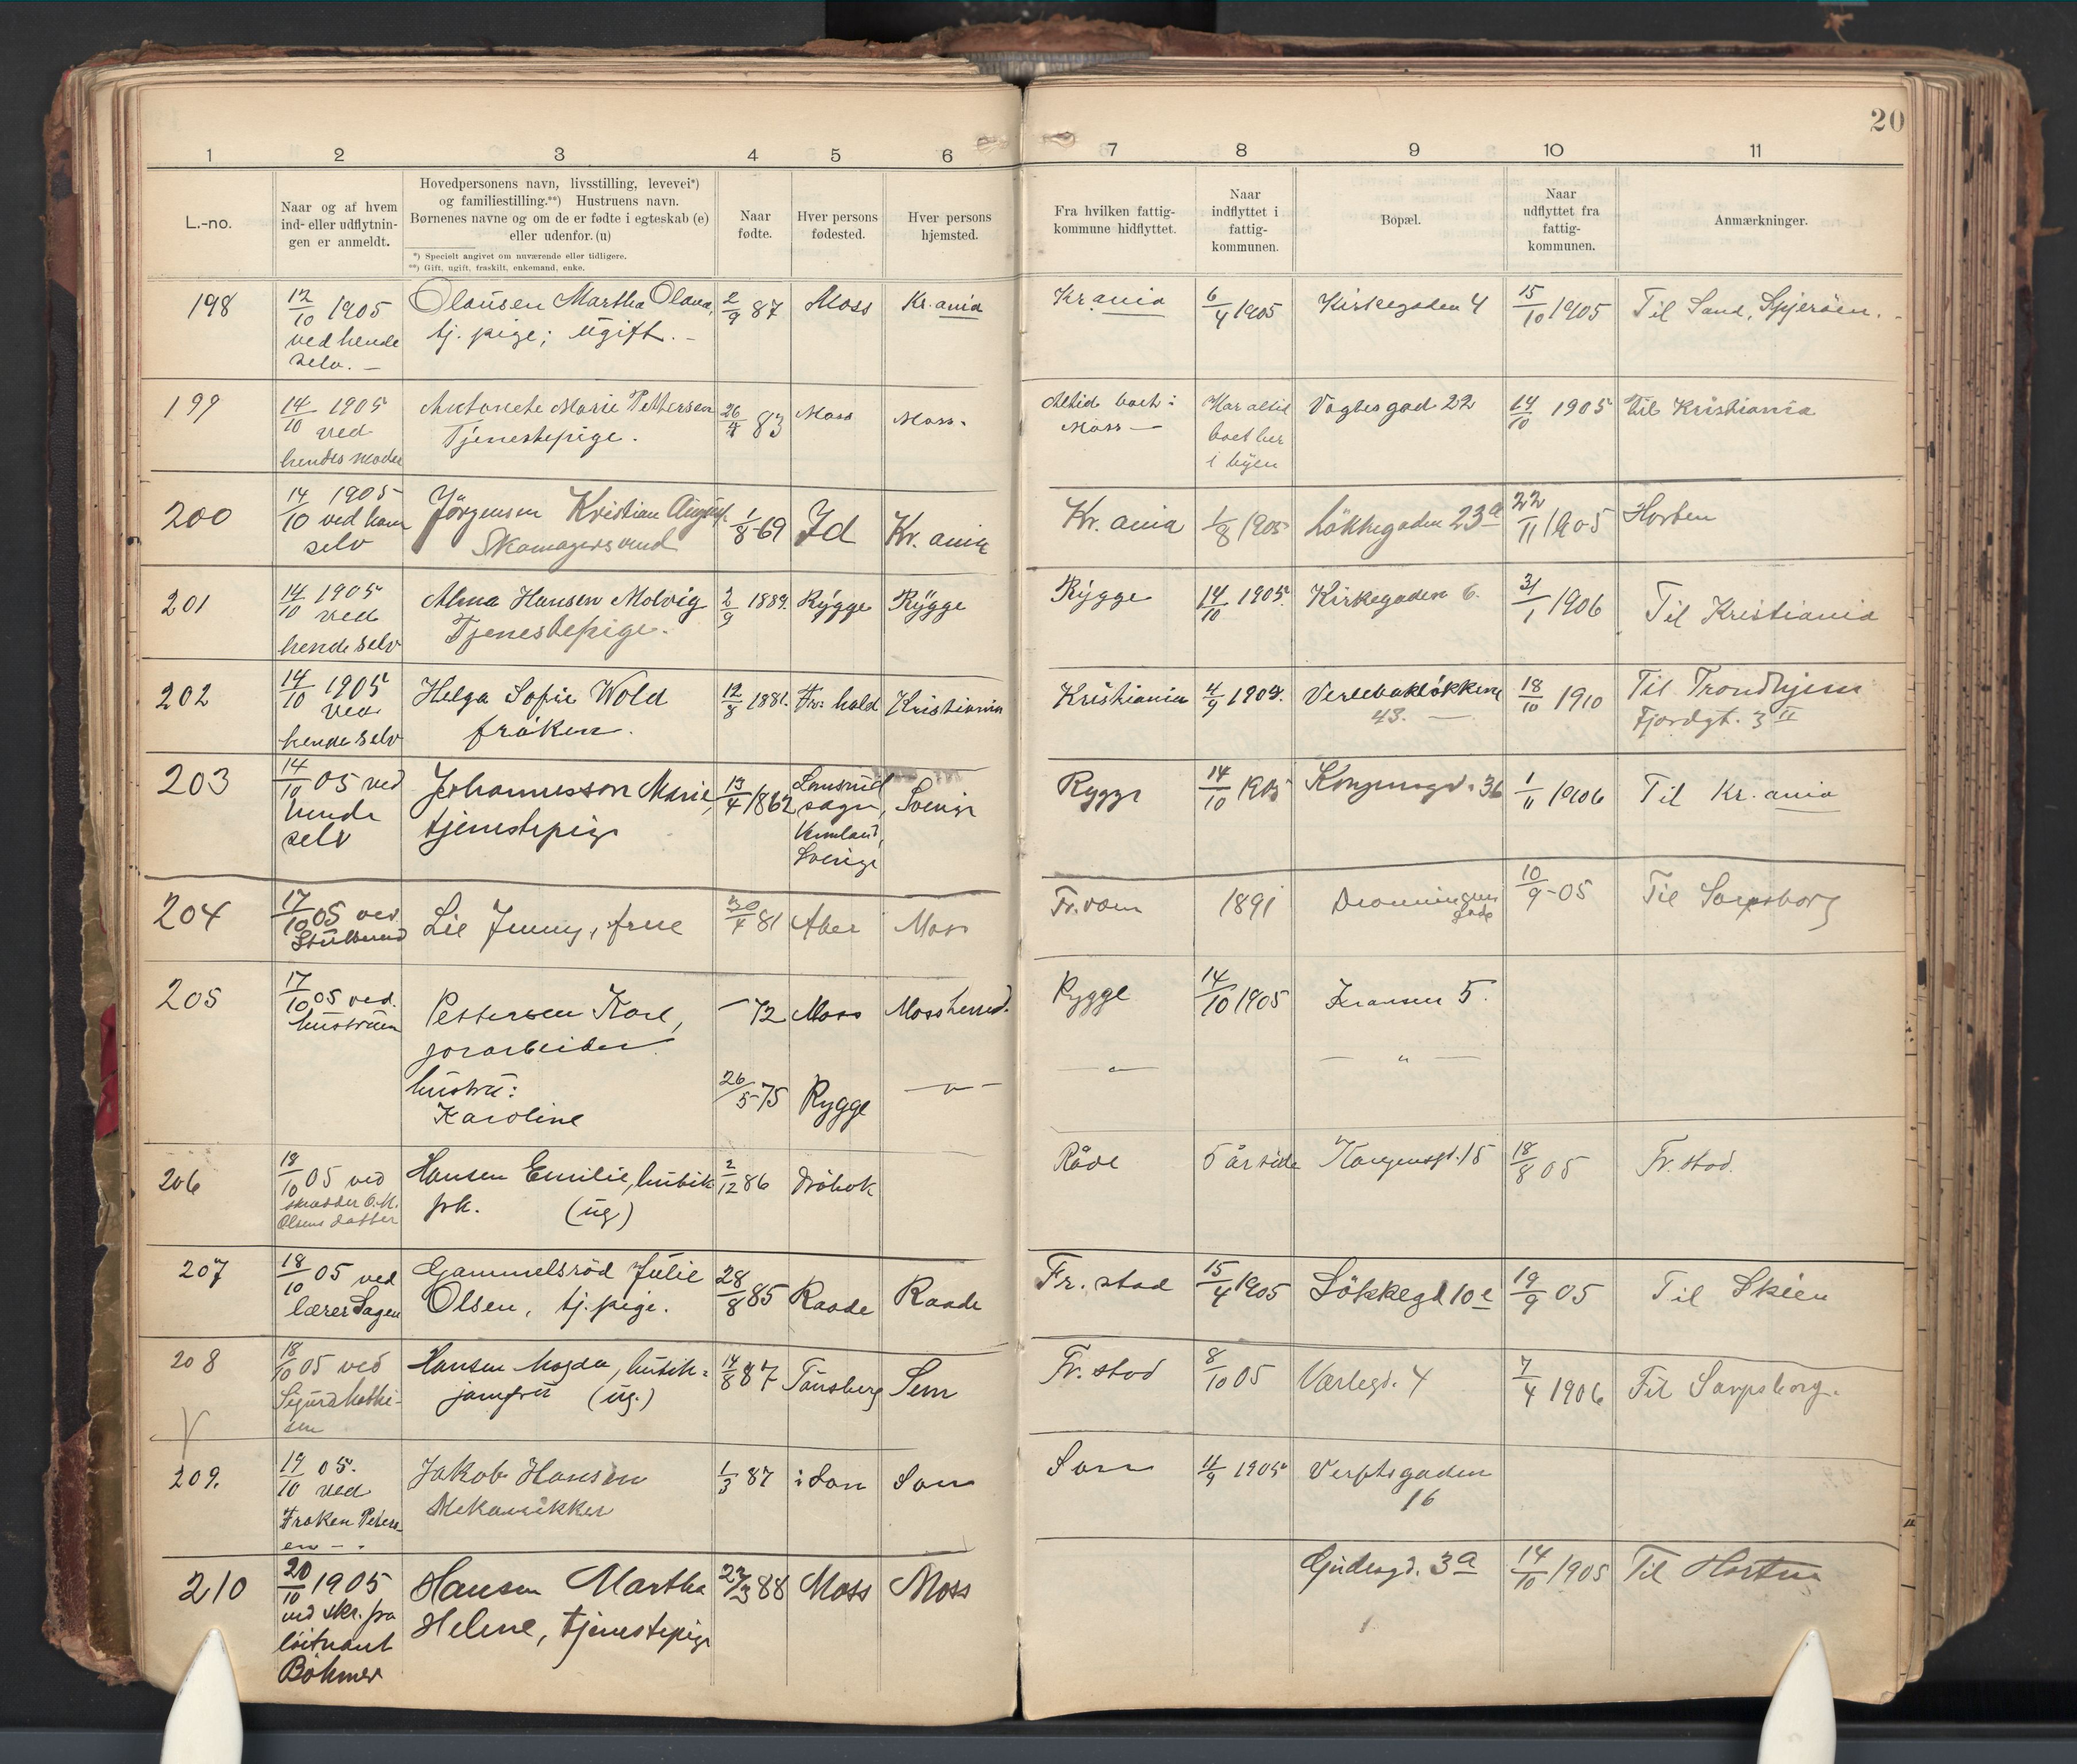 20
1 2 3 4 5 6 7 8 9 10 11
L.-no.
Naar og af hvem
ind- eller udflytnin-
gen er anmeldt.
Hovedpersonens navn, livsstilling, levevei*)
og familiestilling.**) Hustruens navn.
Børnenes navne og om de er fødte i egteskab (e)
eller udenfor. (u)
*) Specielt angivet om nuværende eller tidligere.
**) Gift, ugift, fraskilt, enkemand, enke.
Naar
fødte.
Hver persons
fødested.
Hver persons
hjemsted.
Fra hvilken fattig-
kommune hidflyttet.
Naar
indflyttet i
fattig-
kommunen.
Bopæl.
Naar
udflyttet fra
fattig-
kommunen.
Anmærkninger.
198 12/10 1905 Olausen Martha Olava, 2/9 87 Moss Kr.ania Kr.ania 6/4 1905 Kirkegaden 4 15/10 1905 Til Sand, Spjerøen.
ved hende tj. pige; ugift.
selv.
199 14/10 1905 Antonete Marie Pettersen 26/4 83 Moss Moss. Altid boet i Har altid Vogtesgad 22 14/10 1905 til Kristiania
ved Tjenestepige. Moss boet her
hendes moder i byen
200 14/10 1905 Jörgensen Kristian August 1/8 69 Id Kr. ania Kr. ania 1/8 1905 Lökkegaden 23a 22/11 1905 Horten
ved ham Skomagersvend
selv
201 14/10 1905 Alma Hansen Molvig 2/9 1889. Rygge Rygge Rygge 14/10 1905. Kirkegaden 6. 31/1 1906 Til Kristiania
ved Tjenestepige.
hende selv
202 14/10 1905 Helga Sofie Wold 12/8 1881. Fr: hald Kristiania Kristiania 4/9 1903. Verlebaklökken 18/10 1910 Til Trondhjem
ved fröken. 43. Fjordgt. 3 II
hende selv
203 14/10 05 ved Johannesson Marie, 13/4 1862 sogn, Sverige Rygge 14/10 1905 Kongensgd. 36 1/11 1906 Til Kr. ania
hende tjenestepige Vermland,
selv Sverige
204 17/10 05 ved Lie Jenny, frue 30/4 81 Aker Moss Fr.vorn 1891 Dronningens 10/9-05 Til Sarpsborg
gade
205 17/10 05 ved. Pettersen Karl, 72 Moss Mossherred. Rygge 14/10 1905 Kransen 5.
hustruen jorarbeider
hustru: 26/5 75 Rygge — " — — " — — " —
Karoline
206 18/10 05 ved Hansen Emilie, butik 2/12 86 Dröbak Råde 5 år siden Kongensgd. 15 18/8 05 Fr. stad.
skrædder O.M. frk. (ug)
Olsens datter
207 18/10 05 ved Gammelsröd Julie 28/8 85 Raade Raade Fr. stad 15/4 1905 Lökkegd 10e 19/9 05 Til Skien
lærer Sagen Olsen, tj. pige.
208 18/10 05 ved Hansen Magda, butik- 14/8 87 Tönsberg Sem Fr. stad 8/10 05 Værlegd. 4 7/4 1906 Til Sarpsborg.
Sigurd Mathi- jomfru (ug.)
sen
209. 19/10 05. Jakob Hansen 1/3 87 i Son Son Son 4/9 1905 Verftsgaden
ved Mekanikker 16
Froken Peters
en
210 20/10 1905 Hansen Martha 27/3 88 Moss Moss Gudesgd. 3a 14/10 1905 Til Horten
ved skr. fra Helene, tjenestepige
löitnant
Böhmer